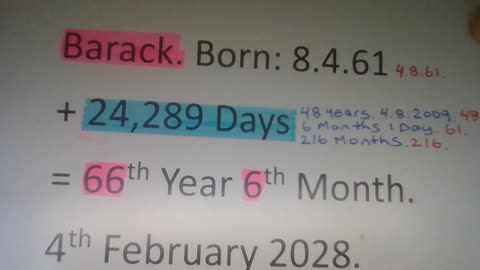 Barack. Born: 8.4.61 4.8.61.
+ 24,289 Days 48 years. 4.8.2009. 48
6 Months 1 Day. 61.
216 Months. 216.
= 66th Year 6th Month.
4th February 2028.